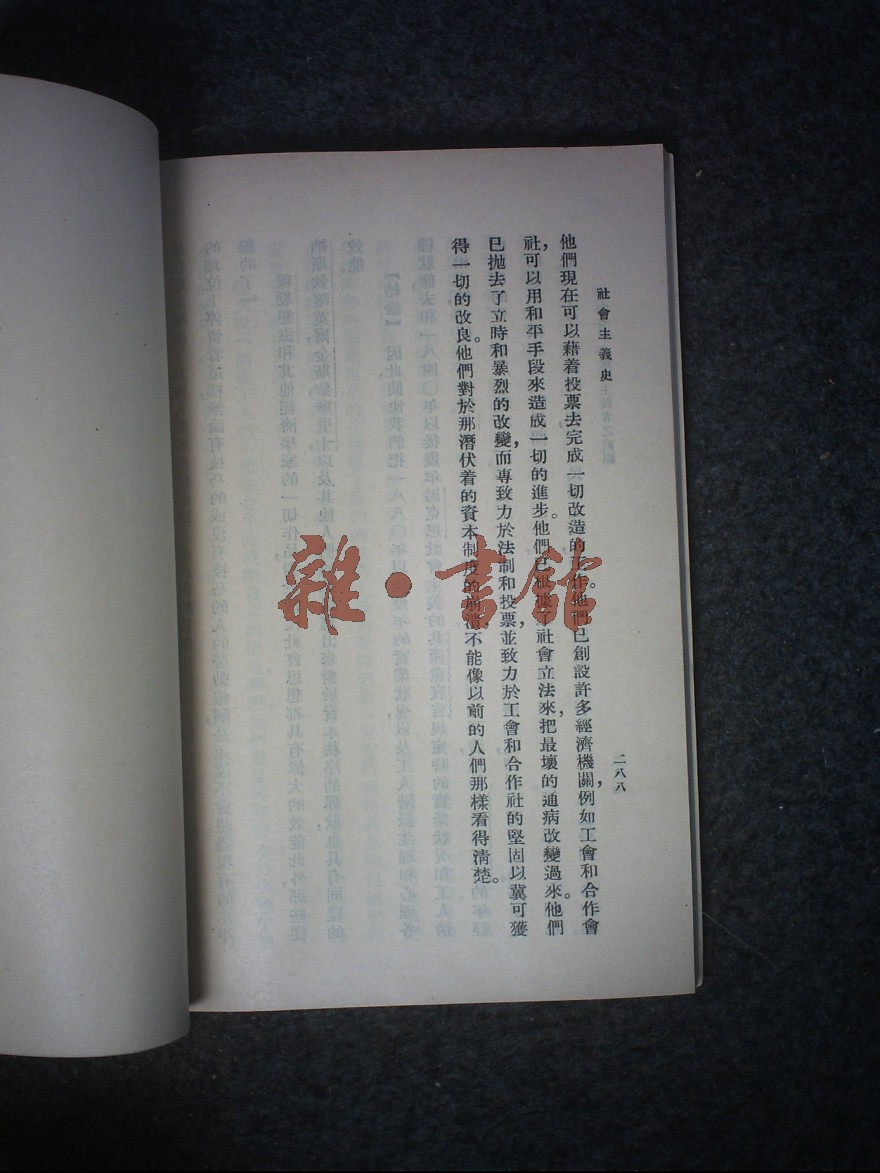 社會主義史
二八八
他們現在可以藉着投票去完成一切改造的工作。他們已創設許多經濟機關，例如工會和合作會
社，可以用和平手段來造成一切的進步。他們已根據了社會立法來，把最壞的通病改變過來。他們
已拋去了立時和暴烈的改變，而專致力於法制和投票，並致力於工會和合作社的堅固以冀可獲
得一切的改良。他們對於那潛伏着的資本制度的崩潰，不能像以前的人們那樣看得清楚。
雜·書館